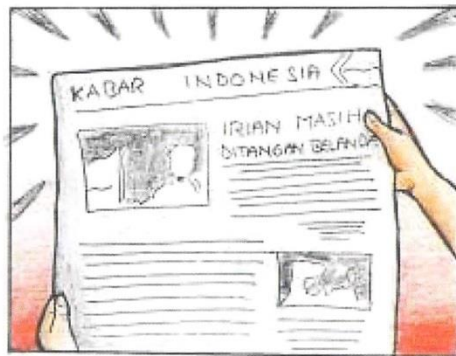 KABAR INDONESIA
IRIAN MASIH
DITANGAN BELANDA